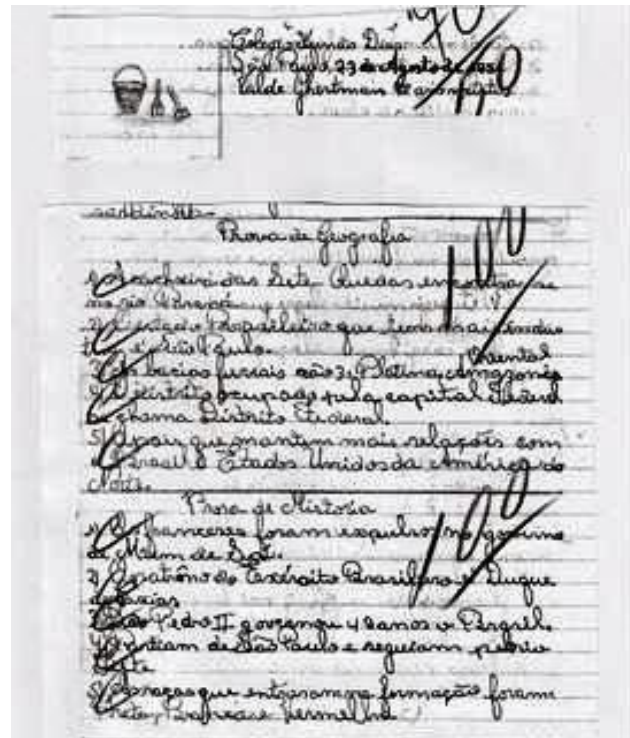 Colegio
São Paulo, 23 de Agosto de 195
100
Prova de Geografia
100
1) A cachoeira das Sete Quedas encontra-se
no rio Paraná
2) O estado brasileiro que tem mais indús
é São Paulo.
Oriental
3) As bacias fluviais são 3: Platina, Amazonas
4) O distrito ocupado pela capital federal
se chama Distrito Federal.
5) O país que mantem mais relações com
o Brasil é Estados Unidos da América do
Norte.
Prova de História
100
1) Os franceses foram expulsos no governo
de Mem de Sá.
2) O patrôno do Exército Brasileiro é Duque
de Caxias
3) Dom Pedro II governou 48 anos o Brasil.
4) Partiam de São Paulo e seguiam pelo rio
Tiete
5) As raças que entraram na formação foram
Preta, Branca e Vermelha